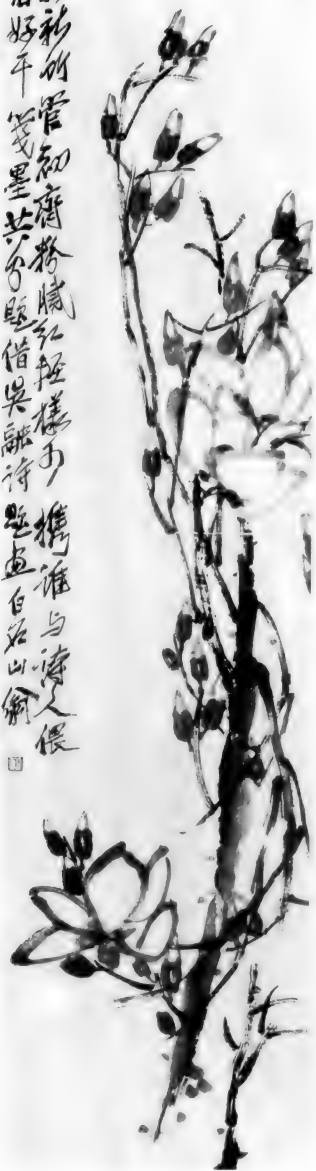 新竹管初齊粉膩紅輕樣可攜誰与詩人偎
好于箋墨共分題借吳融詩題畫白石山翁